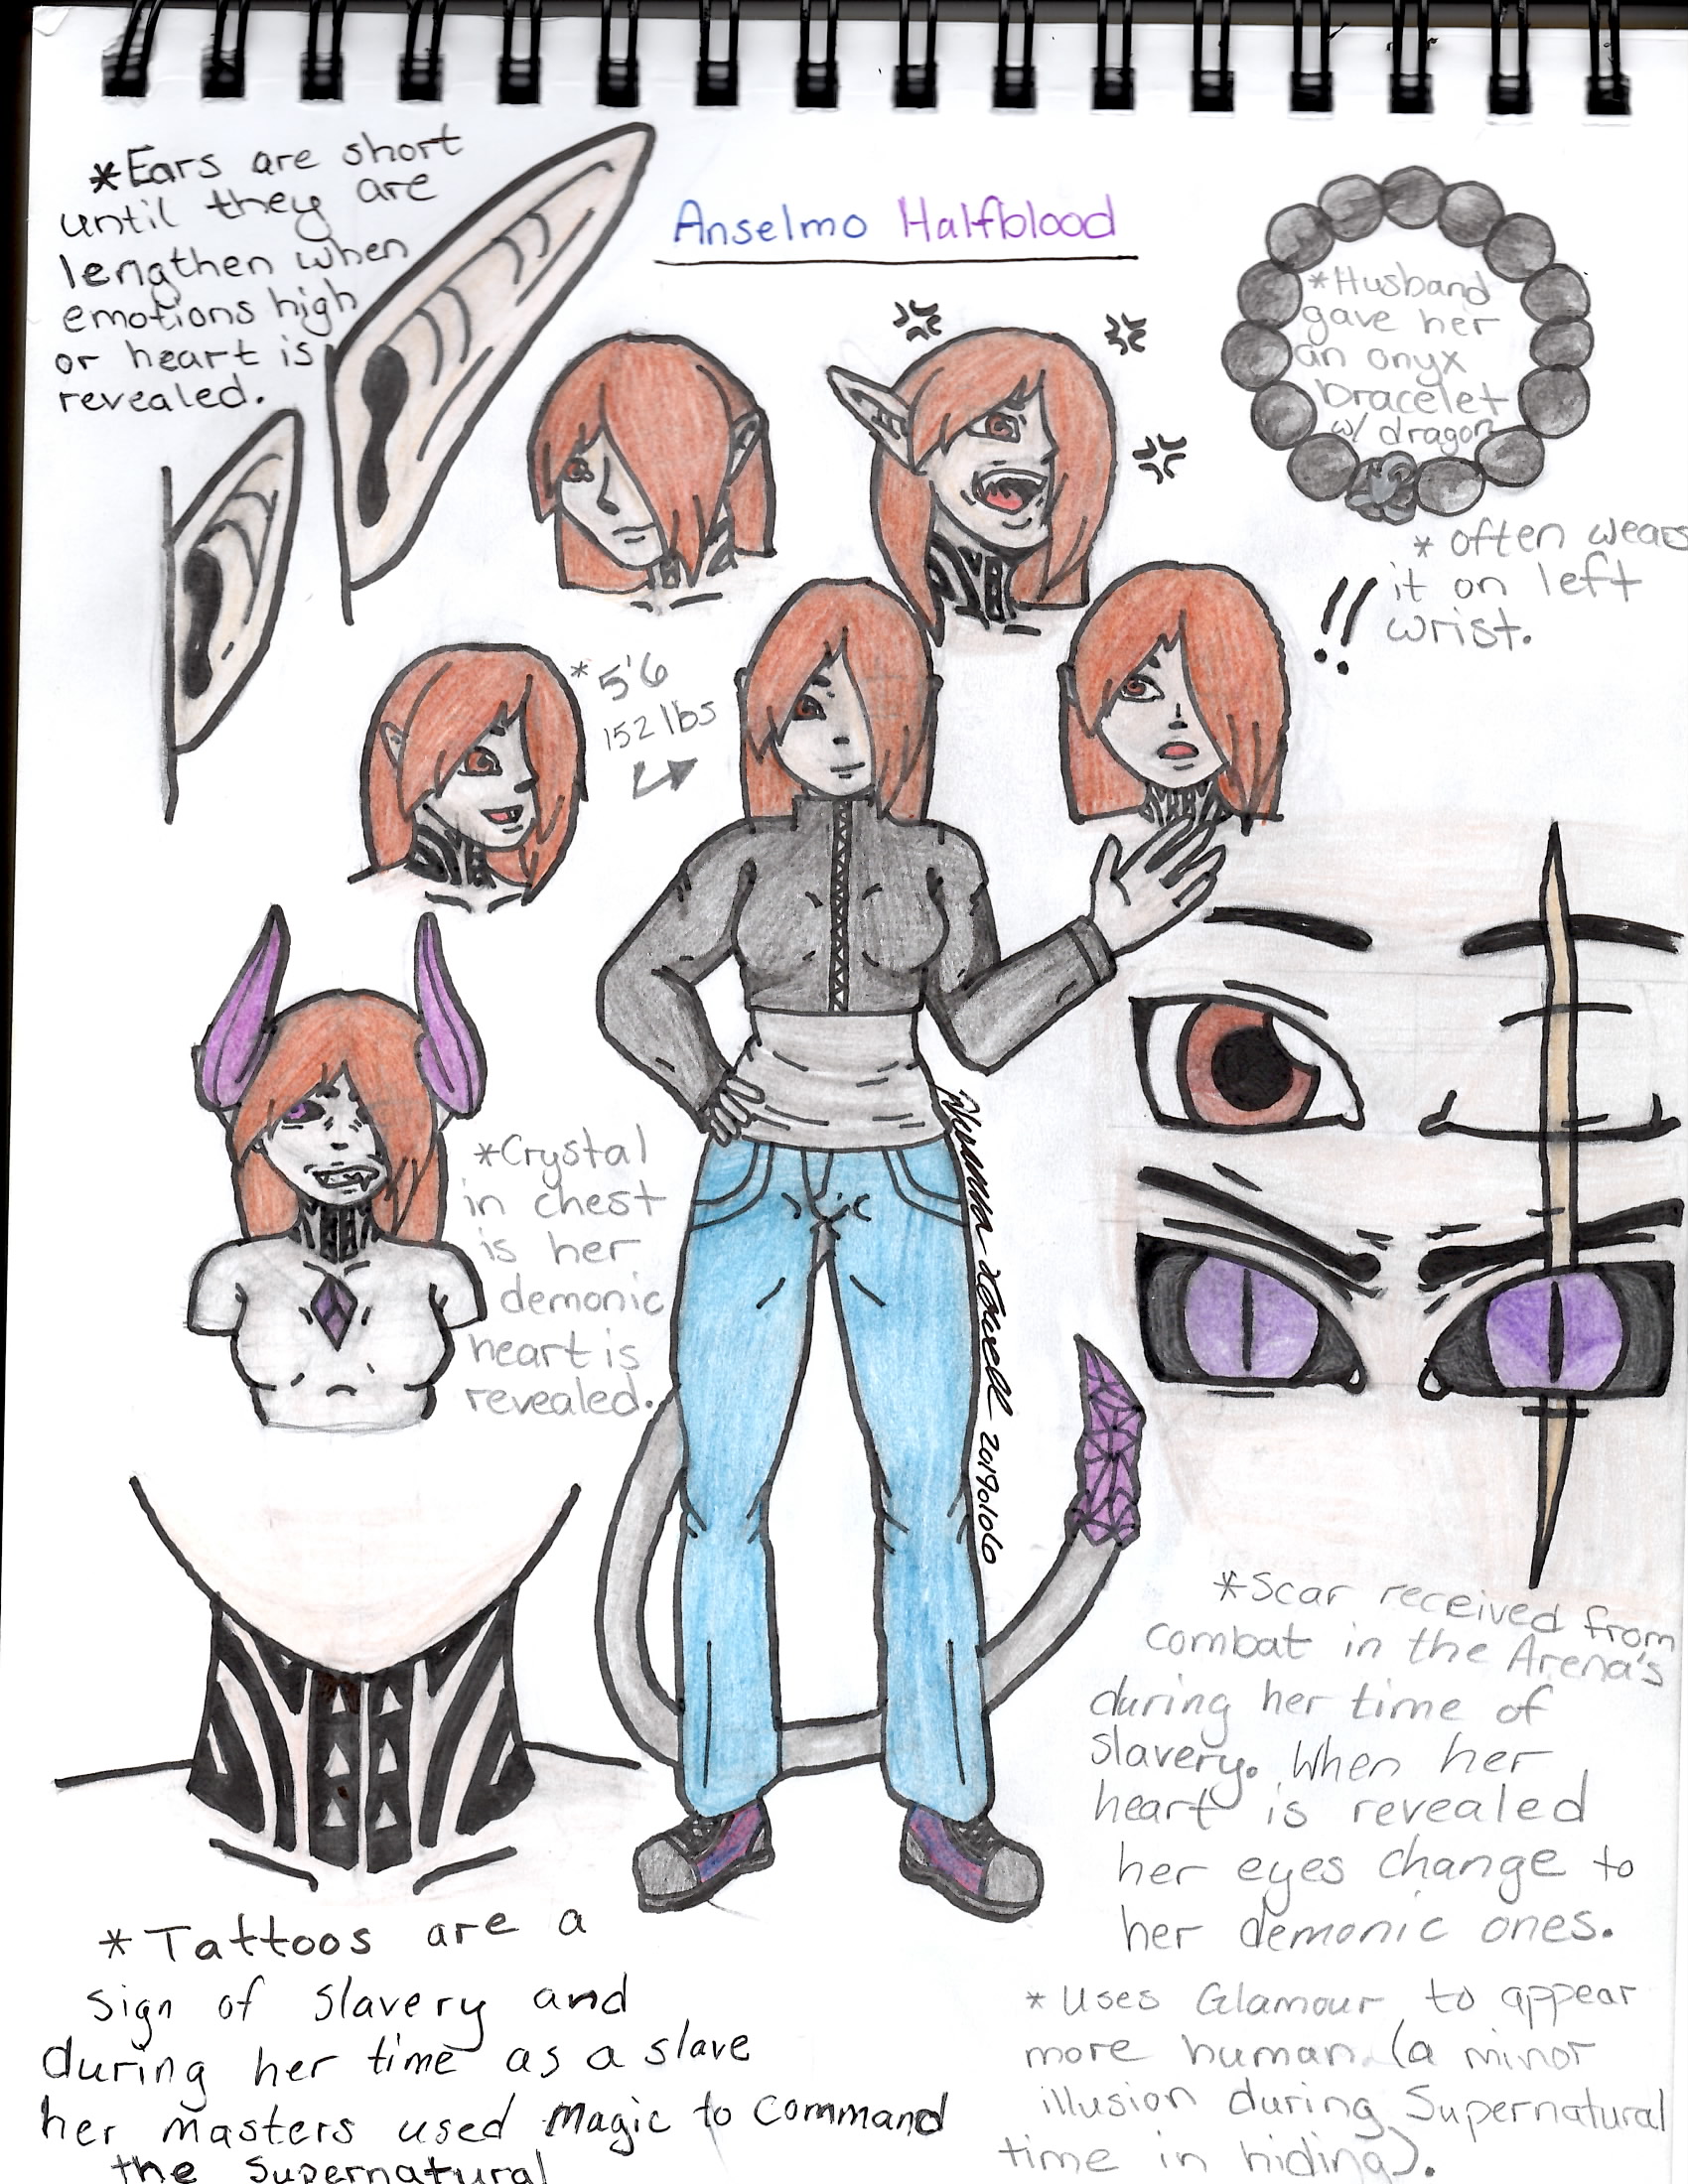 *Ears are short
until they are
lengthen when
emotions high
or heart is
revealed.
Anselmo Halfblood
*Husband
gave her
an onyx
bracelet
w/ dragon
* often wears
it on left
wrist.
!!
*5'6
152 lbs
*Crystal
in chest
is her
demonic
heart is
revealed.
20190106
*Scar received from
combat in the Arena's
during her time of
slavery. When her
heart is revealed
her eyes change to
her demonic ones.
*Tattoos are a
sign of slavery and
during her time as a slave
her masters used magic to command
the supernatural
*Uses Glamour to appear
more human. (a minor
illusion during Supernatural
time in hiding).